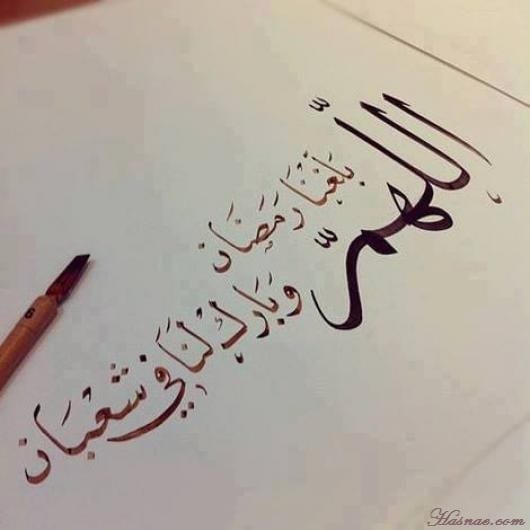 اللّهمّ
بَلِّغْنَا رَمَضَان
وَبَارِك لَنَا في شَعْبَان
6
Hasnae.com